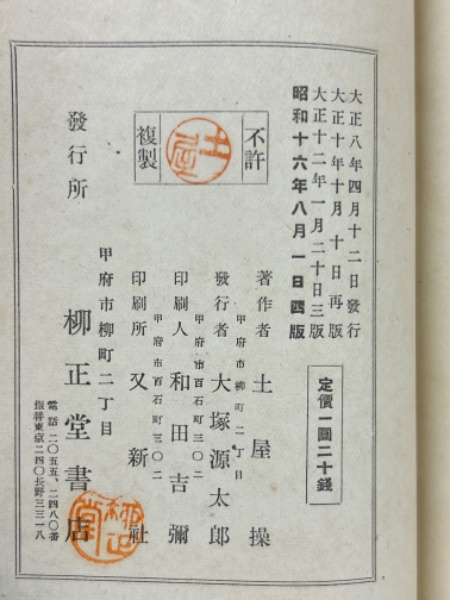 大正八年四月十二日發行
大正十年十月十日再版
大正十二年一月二十日三版
昭和十六年八月一日四版
定價一圓二十錢
不許
複製
著作者 土屋操
甲府市柳町二丁目
發行者 大塚源太郎
甲府市百石町三〇二
印刷人 和田吉彌
甲府市百石町三〇二
印刷所 又新社
發行所
甲府市柳町二丁目
柳正堂書店
電話 二〇五五、二四八〇番
振替東京二四〇長野三三一八